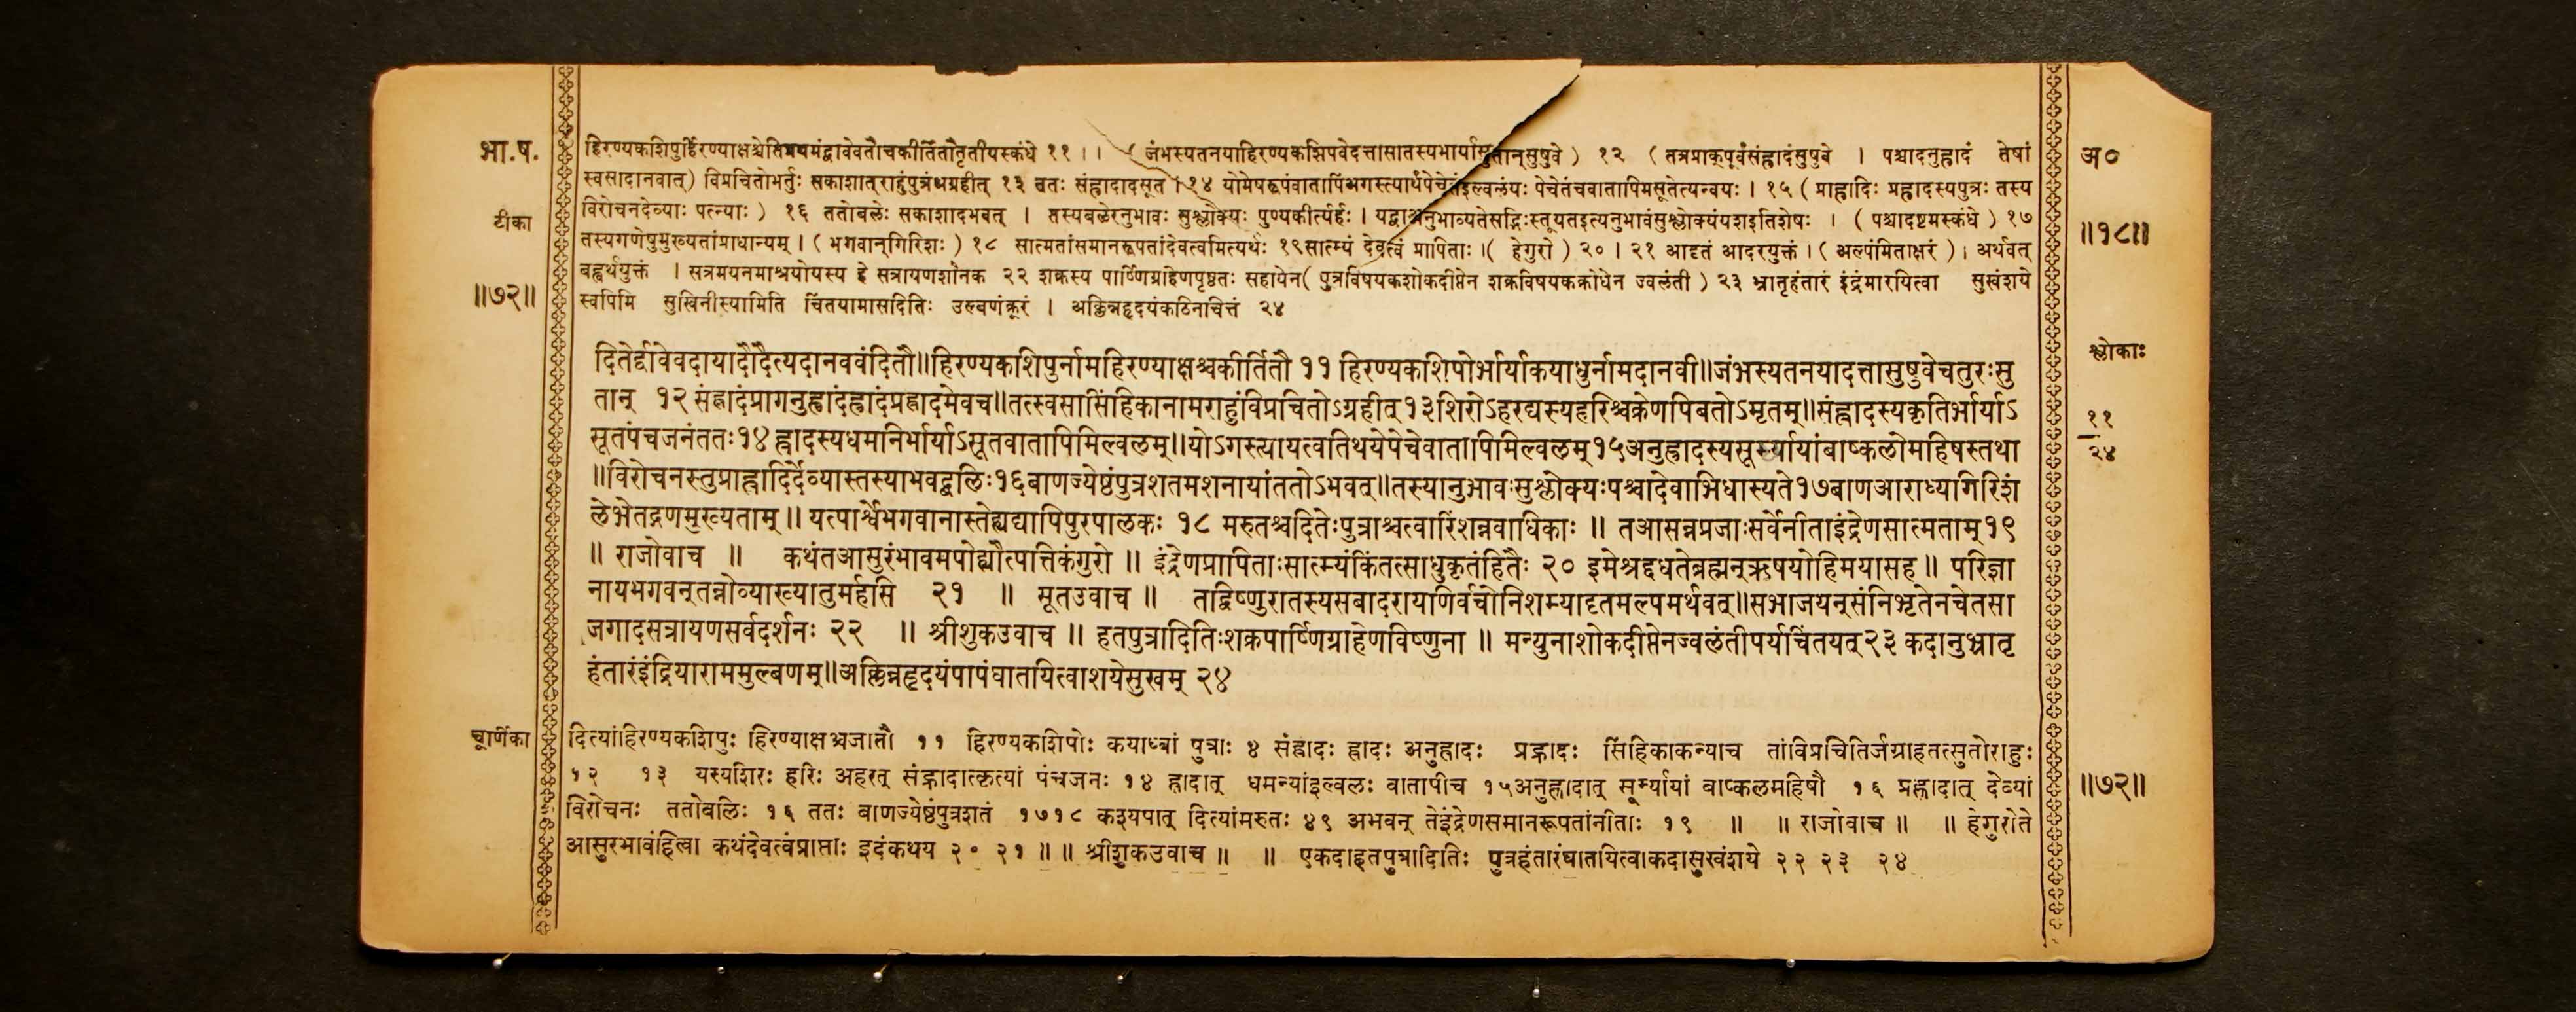 भा.ष.
टीका
॥७२॥
हिरण्यकशिपुर्हिरण्याक्षश्चेतिप्रथमंद्वावेवतौचकीर्तितौतृतीयस्कंधे ११ ।। (जंभस्यतनयाहिरण्यकशिपवेदत्तासातस्यभार्या सुतान्सुषुवे) १२ (तत्रप्राक्पूर्वंसंह्रादंसुषुवे । पश्चादनुह्रादं तेषां
स्वसादानवात्) विप्रचितोभर्तुः सकाशात्‌राहुंपुत्रंअग्रहीत् १३ ततः संह्रादादसूत । १४ योमेषरूपंवातापिंअगस्त्यार्थंपेचे तंइल्वलंयः पेचेतंचवातापिमसूतेत्यन्वयः । १५ ( प्राह्रादिः प्रह्रादस्यपुत्रः तस्य
विरोचनदेव्याः पत्न्याः ) १६ ततोबलेः सकाशादभवत् । तस्यबलेरनुभावः सुश्लोक्यः पुण्यकीर्त्यर्हः । यद्वा अनुभाव्यतेसद्भिःस्तूयतइत्यनुभावंसुश्लोक्यंयशइतिशेषः । ( पश्चादष्टमस्कंधे ) १७
तस्यगणेषुमुख्यतांप्राधान्यम् । ( भगवान्‌गिरिशः ) १८ सात्मतांसमानरूपतांदेवत्वमित्यर्थः १९सात्म्यं देवत्वं प्रापिताः ।( हेगुरो ) २० । २१ आदृतं आदरयुक्तं । ( अल्पंमिताक्षरं ) । अर्थवत्
बह्वर्थयुक्तं । सत्रमयनमाश्रयोयस्य हे सत्रायणशौनक २२ शक्रस्य पार्ष्णिग्राहेणपृष्ठतः सहायेन( पुत्रविषयकशोकदीप्तेन शक्रविषयकक्रोधेन ज्वलंती ) २३ भ्रातृहंतारं इंद्रंमारयित्वा सुखंशये
स्वपिमि सुखिनीस्यामिति चिंतयामासदितिः उल्बणंक्रूरं । अक्लिन्नहृदयंकठिनाचित्तं २४
दितेर्द्वावेवदायादौदैत्यदानववंदितौ॥हिरण्यकशिपुर्नामहिरण्याक्षश्चकीर्तितौ ११ हिरण्यकशिपोर्भार्याकयाधुर्नामदानवी॥जंभस्यतनयादत्तासुषुवेचतुरःसु
तान् १२ संह्रादंप्रागनुह्रादंह्रादंप्रह्रादमेवच॥तत्स्वसासिंहिकानामराहुंविप्रचितोऽग्रहीत्१३शिरोऽहरद्यस्यहरिश्चक्रेणपिबतोऽमृतम्॥संह्रादस्यकृतिर्भार्याऽ
सूतपंचजनंततः१४ ह्रादस्यधमनिर्भार्याऽसूतवातापिमिल्वलम्॥योऽगस्त्यायत्वतिथयेपेचेवातापिमिल्वलम्१५अनुह्रादस्यसूर्म्यायांबाष्कलोमहिषस्तथा
॥विरोचनस्तुप्राह्रादिर्देव्यास्तस्याभवद्बलिः१६बाणज्येष्ठंपुत्रशतमशनायांततोऽभवत्॥तस्यानुभावःसुश्लोक्यःपश्चादेवाभिधास्यते१७बाणआराध्यगिरिशं
लेभेतद्गणमुख्यताम्॥ यत्पार्श्वेभगवानास्तेह्यद्यापिपुरपालकः १८ मरुतश्चदितेःपुत्राश्चत्वारिंशन्नवाधिकाः ॥ तआसन्नप्रजाःसर्वेनीताइंद्रेणसात्मताम्१९
॥ राजोवाच ॥ कथंतआसुरंभावमपोह्यौत्पत्तिकंगुरो ॥ इंद्रेणप्रापिताःसात्म्यंकिंतत्साधुकृतंहितैः २० इमेश्रद्दधतेब्रह्मन्‌ऋषयोहिमयासह॥ परिज्ञा
नायभगवन्‌तन्नोव्याख्यातुमर्हसि २१ ॥ सूतउवाच ॥ तद्विष्णुरातस्यसबादरायणिर्वचोनिशम्यादृतमल्पमर्थवत्॥सभाजयन्‌संनिभृतेनचेतसा
जगादसत्रायणसर्वदर्शनः २२ ॥ श्रीशुकउवाच ॥ हतपुत्रादितिःशक्रपार्ष्णिग्राहेणविष्णुना ॥ मन्युनाशोकदीप्तेनज्वलंतीपर्यचिंतयत्२३ कदानुभ्रातृ
हंतारंइंद्रियाराममुल्बणम्॥अक्लिन्नहृदयंपापंघातयित्वाशयेसुखम् २४
चूर्णिका
दित्यांहिरण्यकशिपुः हिरण्याक्षश्चजातौ ११ हिरण्यकशिपोः कयाध्वां पुत्राः ४ संह्रादः ह्रादः अनुह्रादः प्रह्रादः सिंहिकाकन्याच तांविप्रचितिर्जग्राहतत्सुतोराहुः
१२ १३ यस्यशिरः हरिः अहरत् संह्रादात्कृत्यां पंचजनः १४ ह्रादात् धमन्यांइल्वलः वातापीच १५अनुह्रादात् सूर्म्यायां बाष्कलमहिषौ १६ प्रह्रादात् देव्यां
विरोचनः ततोबलिः १६ ततः बाणज्येष्ठंपुत्रशतं १७१८ कश्यपात् दित्यांमरुतः ४९ अभवन् तेइंद्रेणसमानरूपतांनीताः १९ ॥ ॥ राजोवाच ॥ ॥ हेगुरोते
आसुरभावंहित्वा कथंदेवत्वंप्राप्ताः इदंकथय २० २१ ॥ ॥ श्रीशुकउवाच ॥ ॥ एकदाहतपुत्रादितिः पुत्रहंतारंघातयित्वाकदासुखंशये २२ २३ २४
अ०
॥१८॥
श्लोकाः
११
२४
॥७२॥